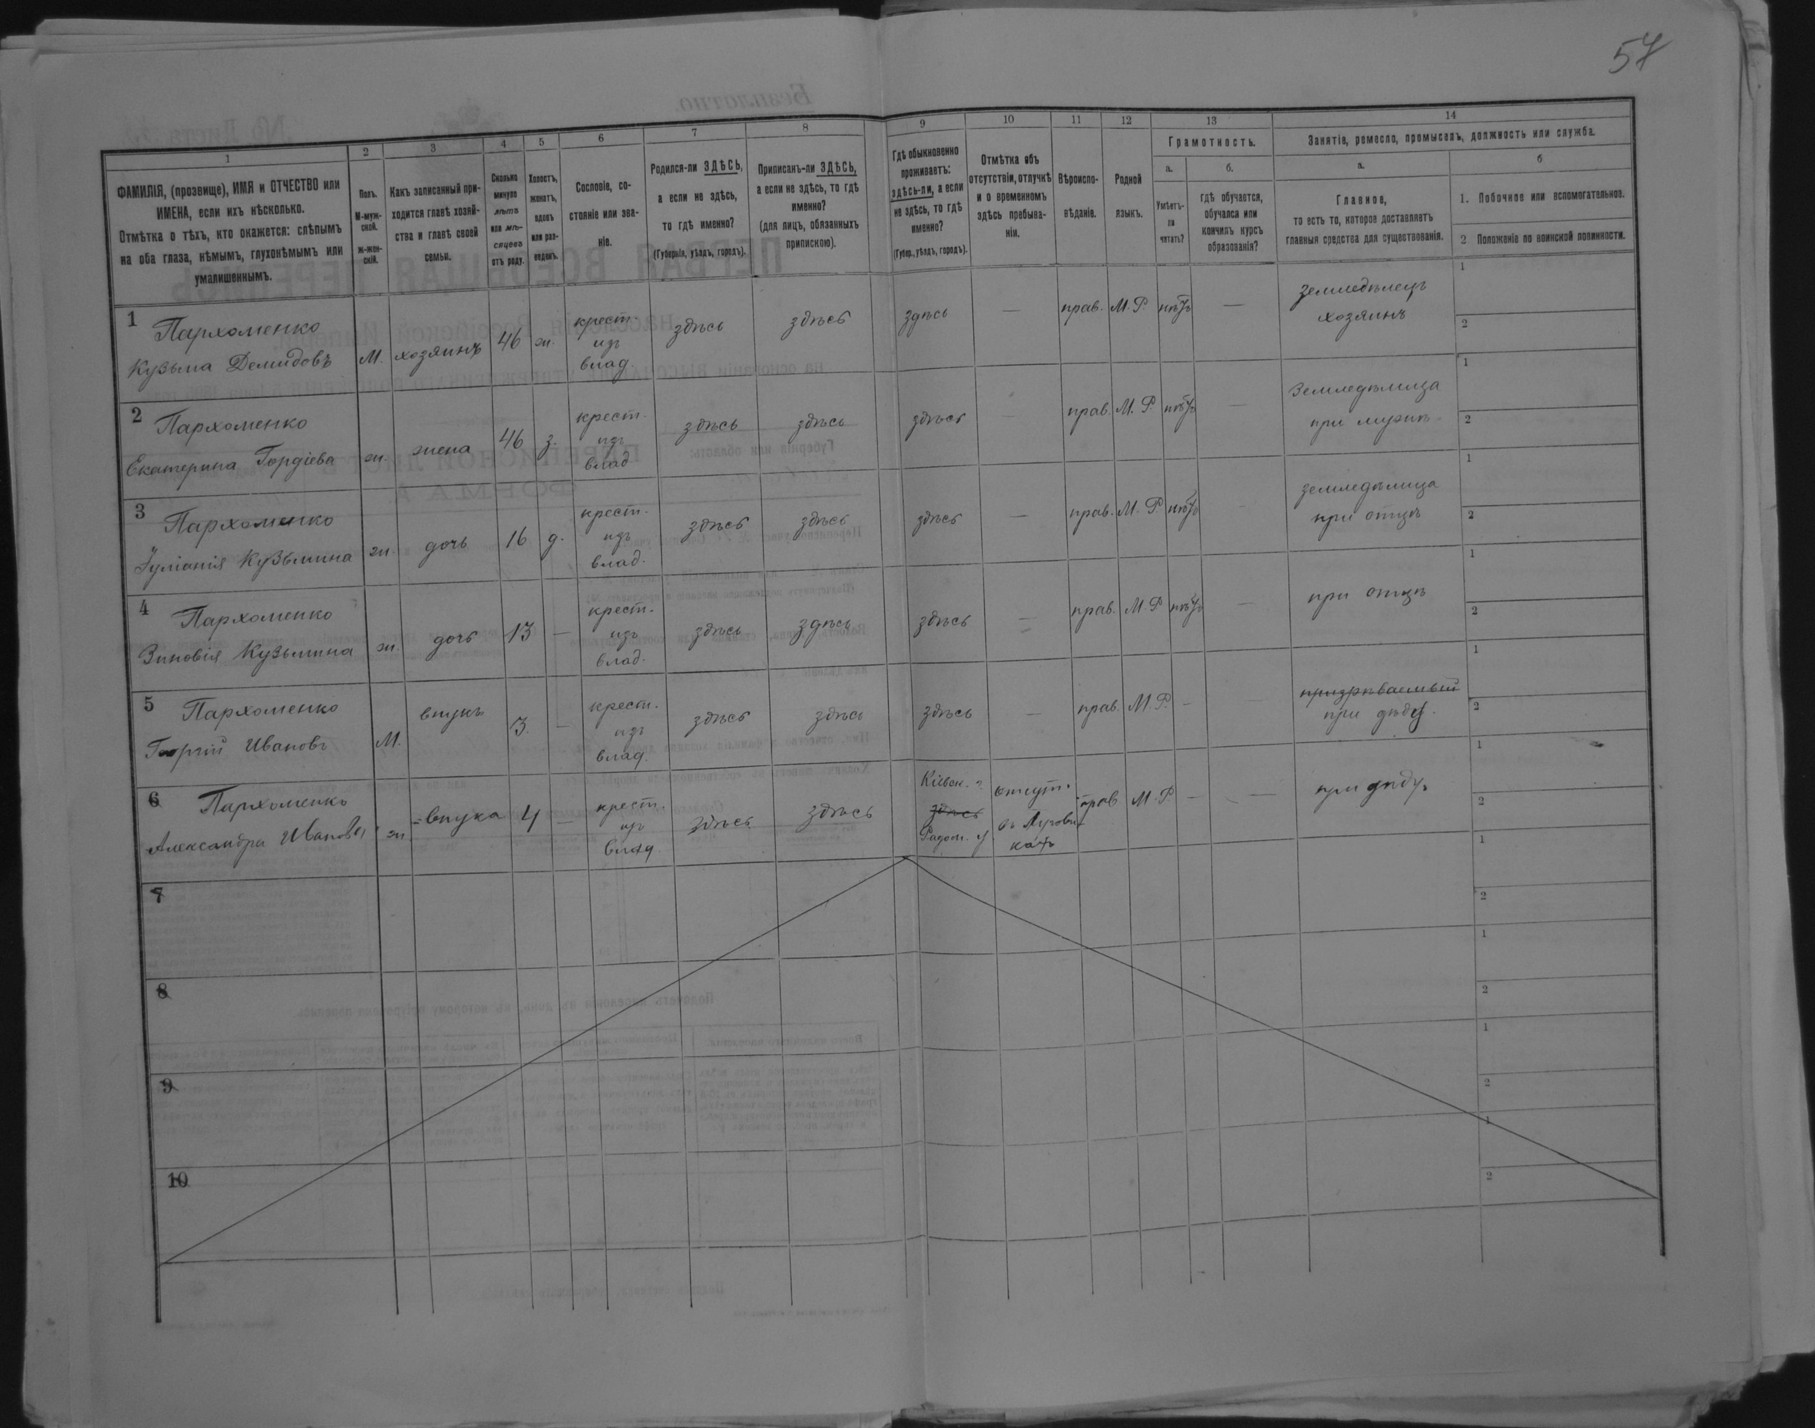 57
1
2
3
4
5
6
7
8
9
10
11
12
13
14
ФАМИЛІЯ, (прозвище), ИМЯ и ОТЧЕСТВО или
ИМЕНА, если ихъ нѣсколько.
Отмѣтка о тѣхъ, кто окажется: слѣпымъ
на оба глаза, нѣмымъ, глухонѣмымъ или
умалишеннымъ.
Полъ.
М-муж-
ской.
ж-жен-
скій.
Какъ записанный при-
ходится главѣ хозяй-
ства и главѣ своей
семьи.
Сколько
минуло
лѣтъ
или мѣ-
сяцевъ
отъ роду.
Холостъ,
женатъ,
вдовъ
или раз-
веденъ.
Сословіе, со-
стояніе или зва-
ніе.
Родился-ли ЗДѢСЬ,
а если не здѣсь,
то гдѣ именно?
(Губернія, уѣздъ, городъ).
Приписанъ-ли ЗДѢСЬ,
а если не здѣсь, то гдѣ
именно?
(для лицъ, обязанныхъ
припискою).
Гдѣ обыкновенно
проживаетъ:
здѣсь-ли, а если
не здѣсь, то гдѣ
именно?
(Губер., уѣздъ, городъ).
Отмѣтка объ
отсутствіи, отлучкѣ
и о временномъ
здѣсь пребыва-
ніи.
Вѣроиспо-
вѣданіе.
Родной
языкъ.
Грамотность.
а.
Умѣетъ-
ли
читать?
б.
гдѣ обучается,
обучался или
кончилъ курсъ
образованія?
Занятіе, ремесло, промыселъ, должность или служба.
а.
Главное,
то есть то, которое доставляетъ
главныя средства для существованія.
б
1. Побочное или вспомогательное.
2 Положеніе по воинской повинности.
1 Пархоменко
Кузьма Демидовъ М. хозяинъ 46 ж. крест. изъ влад. здѣсь здѣсь здѣсь — прав. М.Р. нѣтъ — земледѣлецъ хозяинъ 1 2
2 Пархоменко
Екатерина Гордіева ж жена 46 з. крест. изъ влад здѣсь здѣсь здѣсь — прав. М.Р. нѣтъ — Земледѣлица при мужѣ 1 2
3 Пархоменко
Іуліанія Кузьмина ж дочь 16 д. крест. изъ влад. здѣсь здѣсь здѣсь — прав. М.Р нѣтъ земледѣлица при отцѣ 1 2
4 Пархоменко
Зиновія Кузьмина ж. дочь 13 — крест. изъ влад. здѣсь здѣсь здѣсь — прав. М.Р нѣтъ — при отцѣ 1 2
5 Пархоменко
Георгій Ивановъ М. внукъ 3. — крест. изъ влад. здѣсь здѣсь здѣсь — прав. М.Р. — — при дѣду. 1 2
6 Пархоменко
Александра Иванова ж. внука 4 — крест. изъ влад здѣсь здѣсь Кіевск. г здѣсь Радом. у отсут. въ прав М.Р. — — при дѣду 1 2
7 1 2
8 1 2
9 1 2
10 1 2